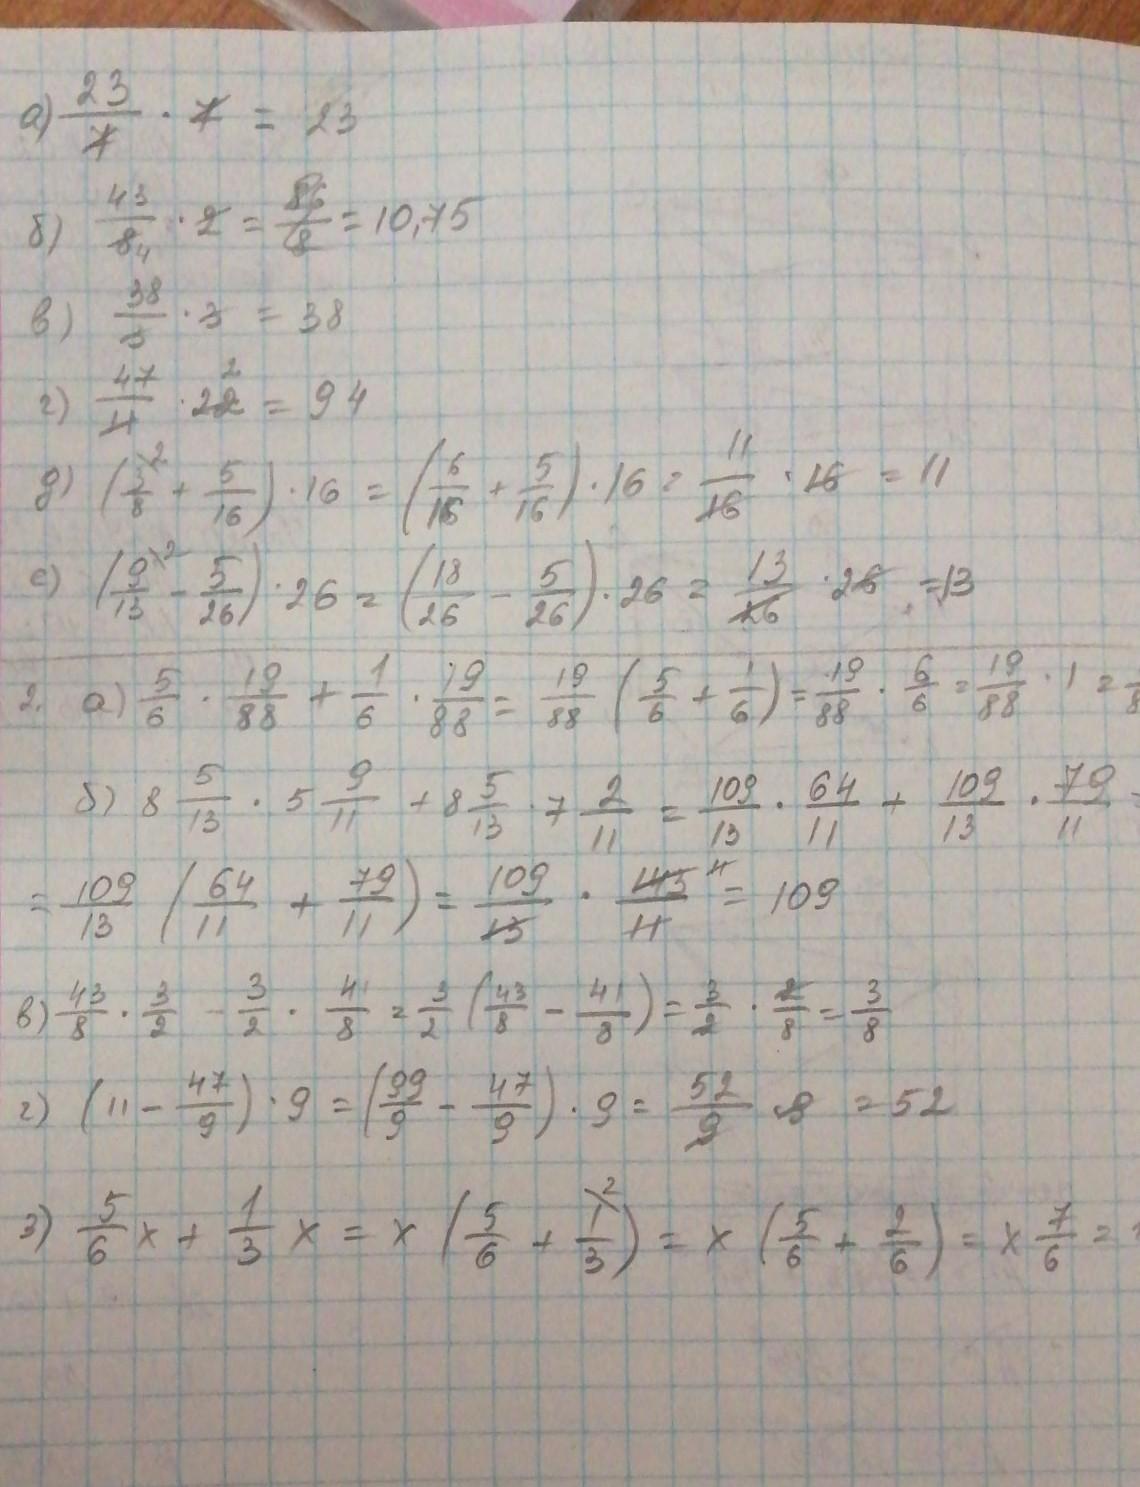 а) 23/7 · 7 = 23
б) 43/8 4 · 2 = 86/8 = 10,75
в) 38/3 · 3 = 38
г) 47/11 · 22 2 = 94
д) (3/8 2 + 5/16) · 16 = (6/16 + 5/16) · 16 = 11/16 · 16 = 11
е) (9/13 2 - 5/26) · 26 = (18/26 - 5/26) · 26 = 13/26 · 26 = 13
2. а) 5/6 · 19/88 + 1/6 · 19/88 = 19/88 (5/6 + 1/6) = 19/88 · 6/6 = 19/88 · 1 =
б) 8 5/13 · 5 9/11 + 8 5/13 · 7 2/11 = 109/13 · 64/11 + 109/13 · 79/11 =
= 109/13 (64/11 + 79/11) = 109/13 · 143/11 11 = 109
в) 43/8 · 3/2 - 3/2 · 41/8 = 3/2 (43/8 - 41/8) = 3/2 · 2/8 = 3/8
г) (11 - 47/9) · 9 = (99/9 - 47/9) · 9 = 52/9 · 9 = 52
3) 5/6 x + 1/3 x = x (5/6 + 1/3 2) = x (5/6 + 2/6) = x 7/6 =